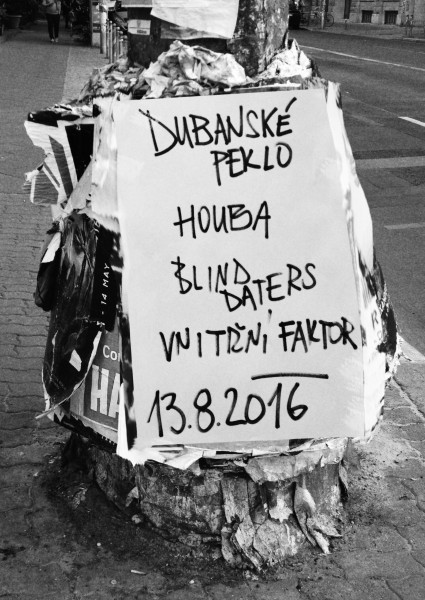 DUBANSKÉ
PEKLO
HOUBA
BLIND
DATERS
VNITŘNÍ FAKTOR
13.8.2016
- 14 MAY
Co
HA